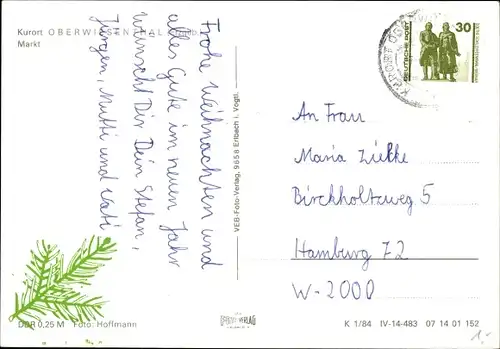 Kurort OBERWIESENTHAL
Markt
Frohe Weihnachten und
alles Gute im neuen Jahr
wünscht Dir Dein Stefan,
Jürgen, Mutti und Vati
VEB-Foto-Verlag, 9658 Erlbach i. Vogtl.
DDR 0,25 M Foto: Hoffmann
30
DEUTSCHE POST
An Frau
Maria Zielke
Birckholtzweg 5
Hamburg 72
W-2000
K 1/84 IV-14-483 07 14 01 152
1.-